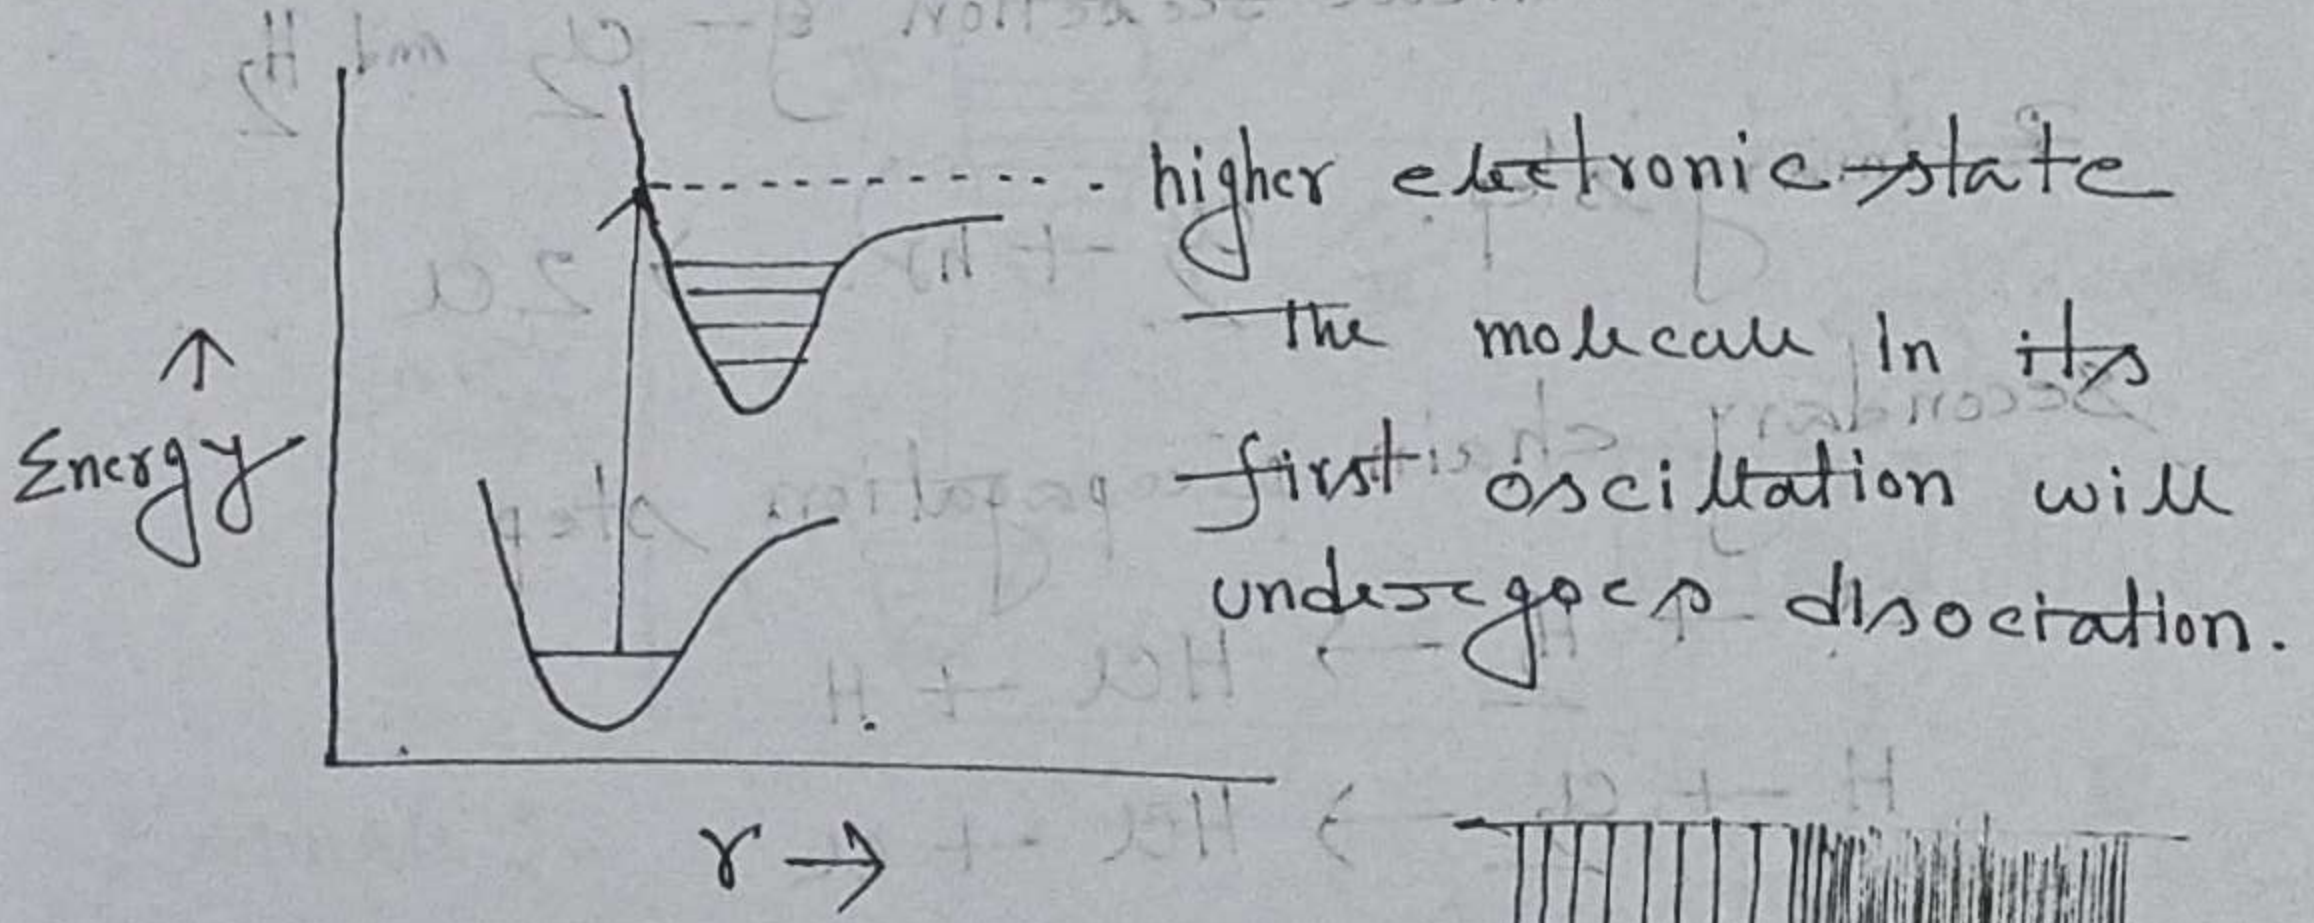 higher electronic state
Energy
↑
The molecule in its
first oscillation will
undergoes disociation.
r →